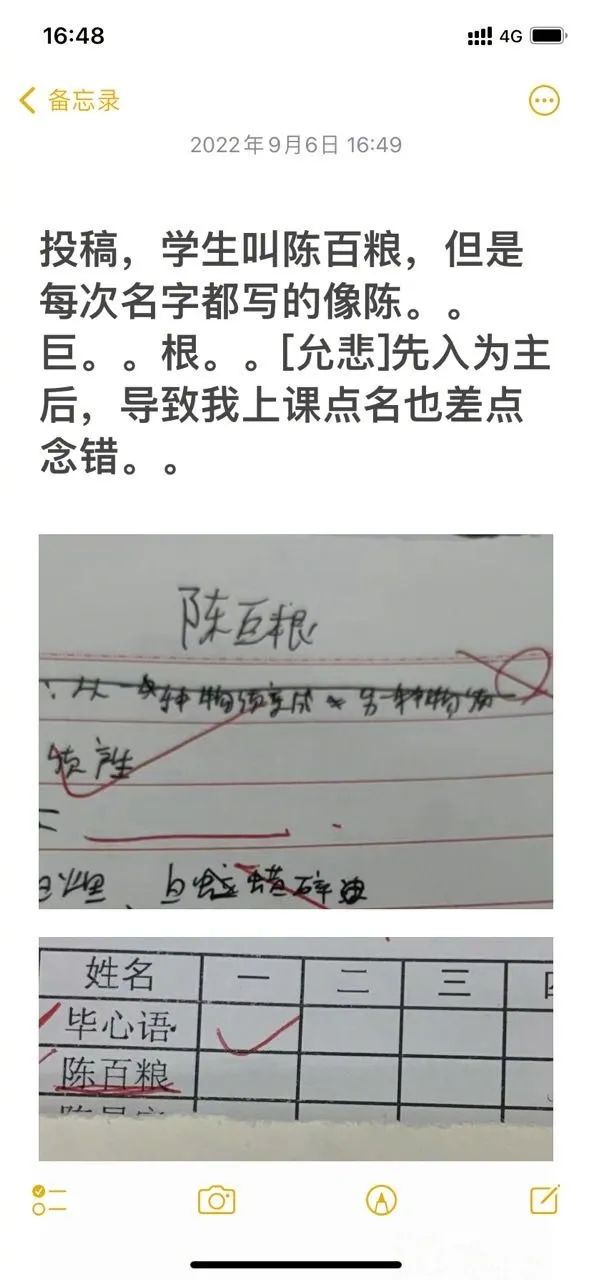 16:48
4G
备忘录
2022年9月6日 16:49
投稿，学生叫陈百粮，但是
每次名字都写的像陈。。
巨。。根。。[允悲]先入为主
后，导致我上课点名也差点
念错。。
陈百粮
从一种物质变成另一种物质
姓名 一 二 三 四
毕心语
陈百粮